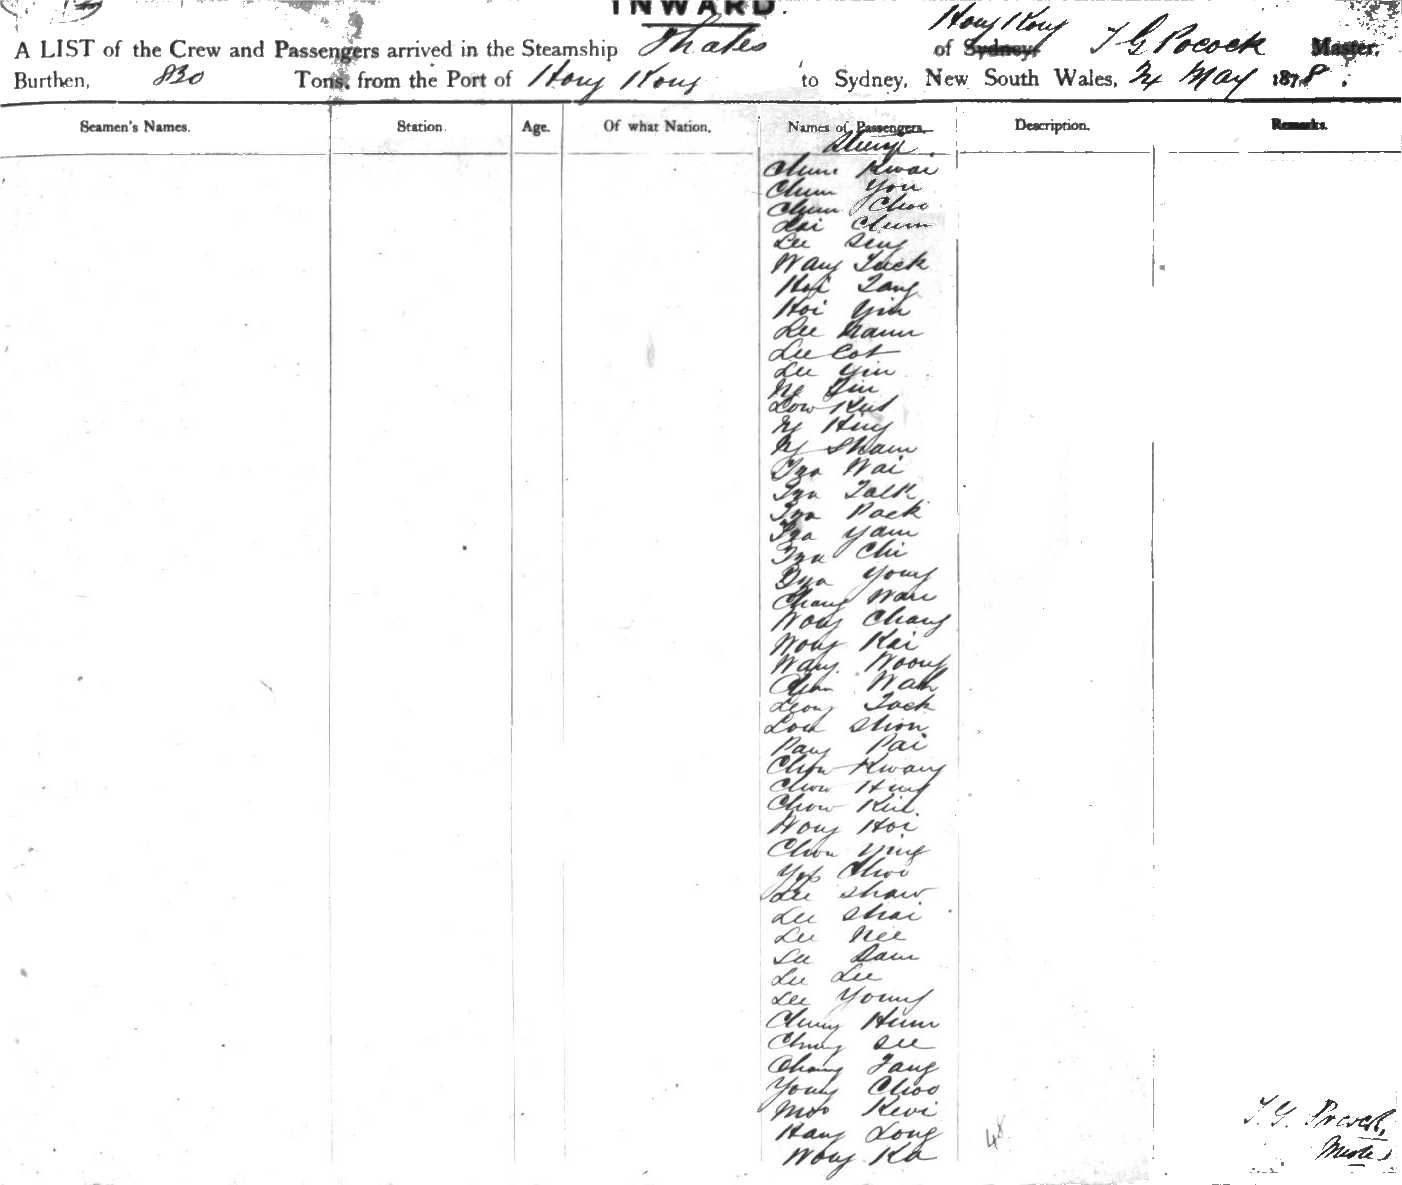 INWARD.
Hong Kong
A LIST of the Crew and Passengers arrived in the Steamship Thales of Sydney, T G Pocock Master,
Burthen, 830 Tons, from the Port of Hong Kong to Sydney, New South Wales, May 1878.
Seamen's Names. Station. Age. Of what Nation. Names of Passengers. Description. Remarks.
Chum Kwai
Chum You
Chum Choo
Lai Chum
Lee Seng
Wang Tuck
Hoi Tang
Hoi Yin
Lee Mann
Lee Cot
Lee Yin
Ng Tin
Low Kut
Ng Hing
Ng Sham
Tza Wai
Tza Talk
Tza Pack
Tza Yam
Tza Chi
Tza Yong
Chang Wan
Wong Chang
Wong Kai
Wang Woong
Chin Wah
Leong Tack
Low Shon
Pang Pai
Chow Kwang
Chow Hing
Chow Kid
Wong Hoi
Chow Ying
Yep Choi
Lee Shaw
Lee Shai
Lee Nee
Lee Dam
Lee Lee
Lee Young
Chung Hum
Chung See
Chang Fang
Young Choo
Moo Kevi
Hang Long
Wong Ka
48
T. G. Pocock,
Master